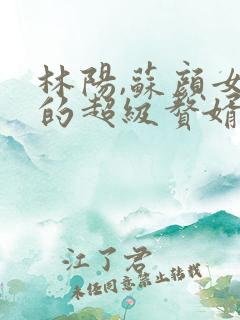 林陽,蘇顏女
的超級贅婿
江了君
未經同意禁止轉載